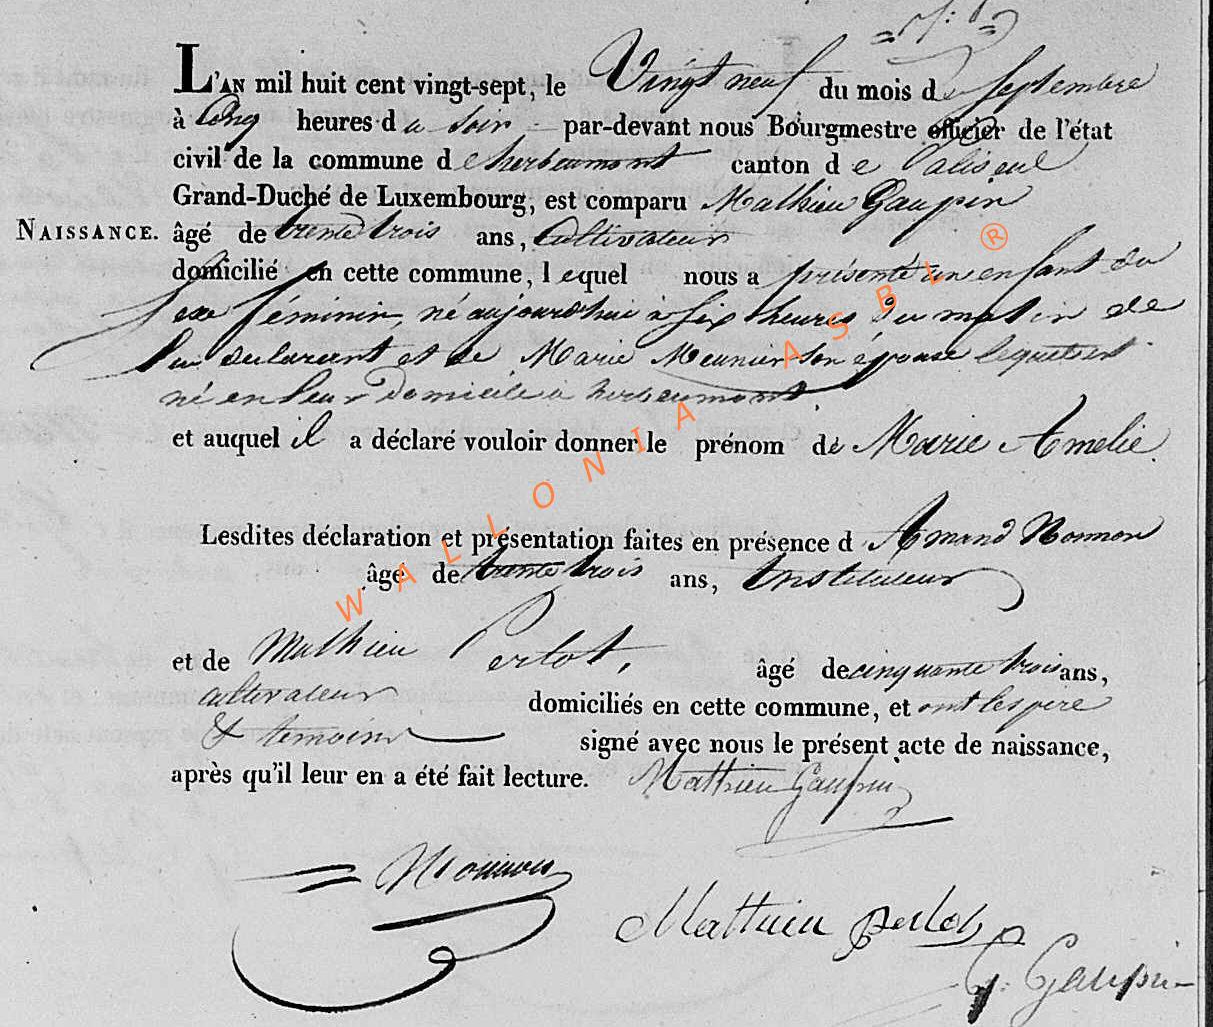 L'AN mil huit cent vingt-sept, le Vingt neuf du mois de Septembre
à Cinq heures du soir par-devant nous Bourgmestre officier de l'état
civil de la commune de herbeumont canton de Paliseul
Grand-Duché de Luxembourg, est comparu Mathieu Gaupin
NAISSANCE. âgé de trente trois ans, Cultivateur
domicilié en cette commune, lequel nous a présenté un enfant du
Sexe féminin, né aujourdhui à six heures du matin de
lui declarant et de Marie Meunier son épouse lequel est
né en leur domicile a herbeumont
et auquel il a déclaré vouloir donner le prénom de Marie Amelie
Lesdites déclaration et présentation faites en présence d Amand
âgé de trente trois ans, Instituteur
et de Mathieu Perlot, âgé de cinquante trois ans,
cultivateur domiciliés en cette commune, et ont les pere
& temoins signé avec nous le présent acte de naissance,
après qu'il leur en a été fait lecture. Mathieu Gaupin
Mathieu perlot
Gaupin
WALLONIA ASBL ®